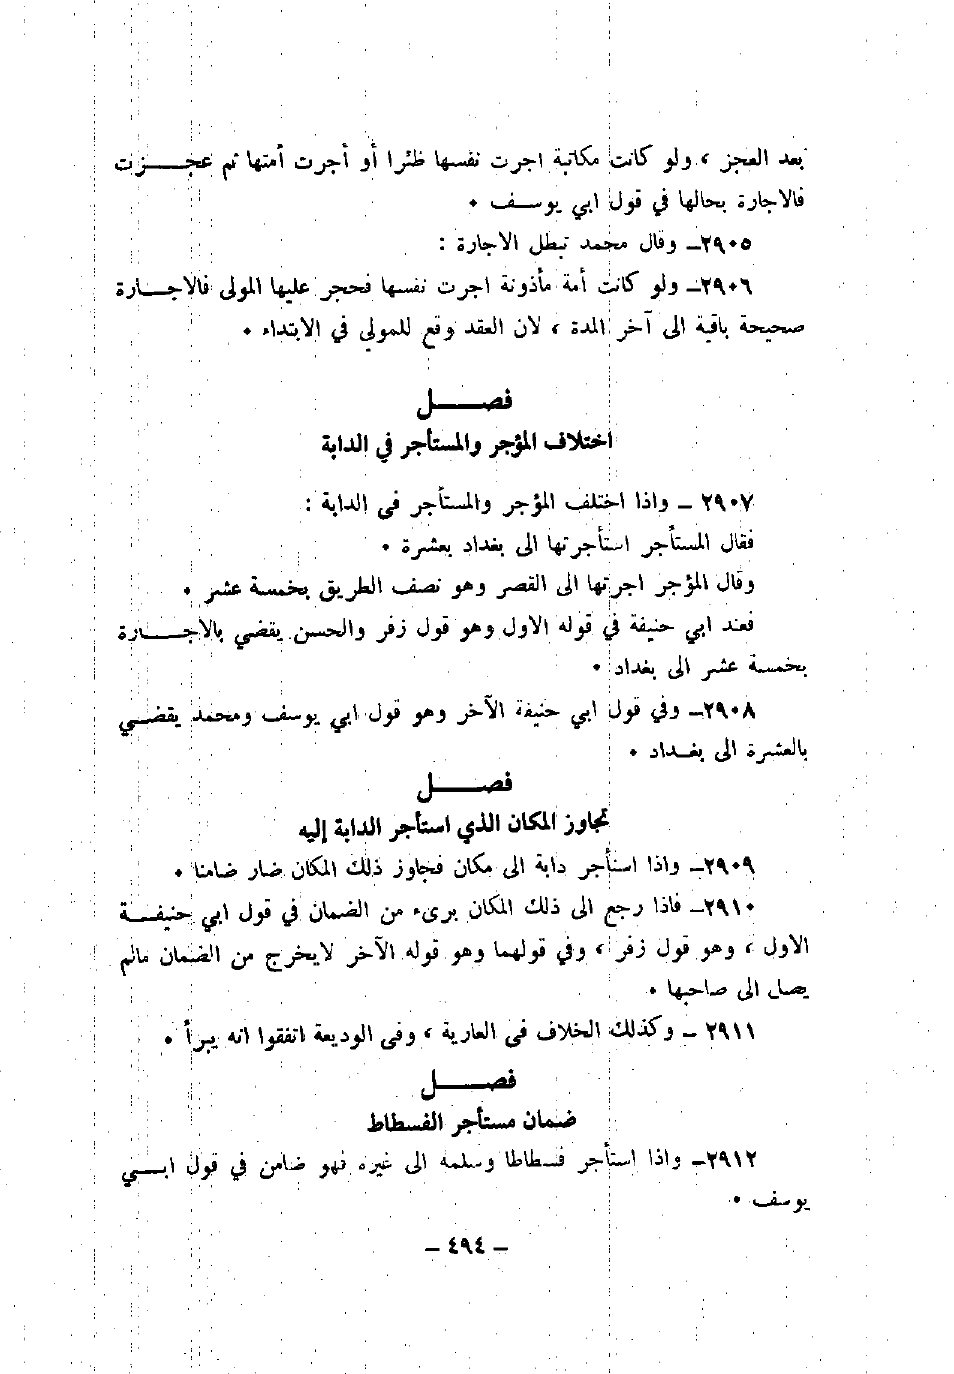 بعد العجز ، ولو كانت مكاتبة اجرت نفسها ظئرا أو أجرت أمتها ثم عجـــزت
فالاجارة بحالها في قول ابي يوســف •
٢٩٠٥ـ وقال محمد تبطل الاجارة :
٢٩٠٦ـ ولو كانت أمة مأذونة اجرت نفسها فحجر عليها المولى فالاجــارة
صحيحة باقية الى آخر المدة ، لان العقد وقع للمولي في الابتداء •
فصـــــل
اختلاف المؤجر والمستأجر في الدابة
٢٩٠٧ ـ واذا اختلف المؤجر والمستأجر في الدابة :
فقال المستأجر استأجرتها الى بغداد بعشرة •
وقال المؤجر اجرتها الى القصر وهو نصف الطريق بخمسة عشر •
فعند ابي حنيفة في قوله الاول وهو قول زفر والحسن يقضي بالاجــــارة
بخمسة عشر الى بغداد •
٢٩٠٨ـ وفي قول ابي حنيفة الآخر وهو قول ابي يوسف ومحمد يقضــي
بالعشرة الى بغــداد •
فصـــــل
تجاوز المكان الذي استأجر الدابة إليه
٢٩٠٩ـ واذا استأجر دابة الى مكان فجاوز ذلك المكان ضار ضامنا •
٢٩١٠ـ فاذا رجع الى ذلك المكان برىء من الضمان في قول ابي حنيفــة
الاول ، وهو قول زفر ، وفي قولهما وهو قوله الآخر لايخرج من الضمان مالم
يصل الى صاحبها •
٢٩١١ ـ وكذلك الخلاف في العارية ، وفي الوديعة اتفقوا انه يبرأ •
فصـــــل
ضمان مستأجر الفسطاط
٢٩١٢ـ واذا استأجر فسطاطا وسلمه الى غيره فهو ضامن في قول ابــي
يوسف •
ـ ٤٩٤ ـ